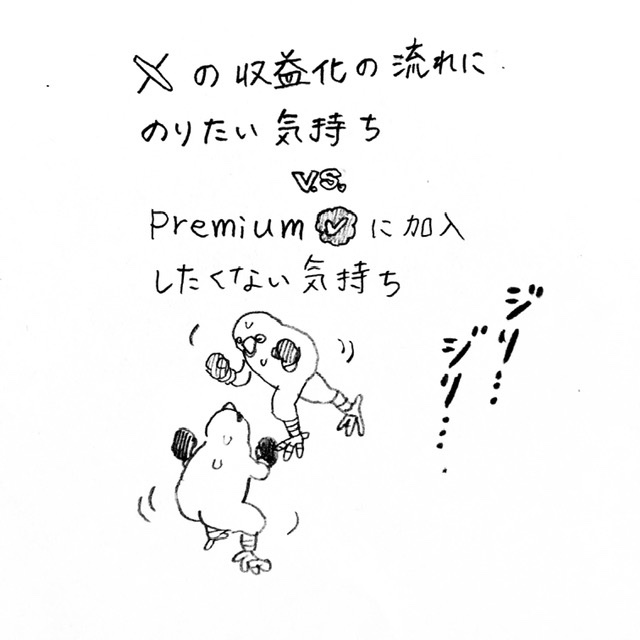 Xの収益化の流れに
のりたい気持ち
v.s.
Premiumに加入
したくない気持ち
ジリ…
ジリ…